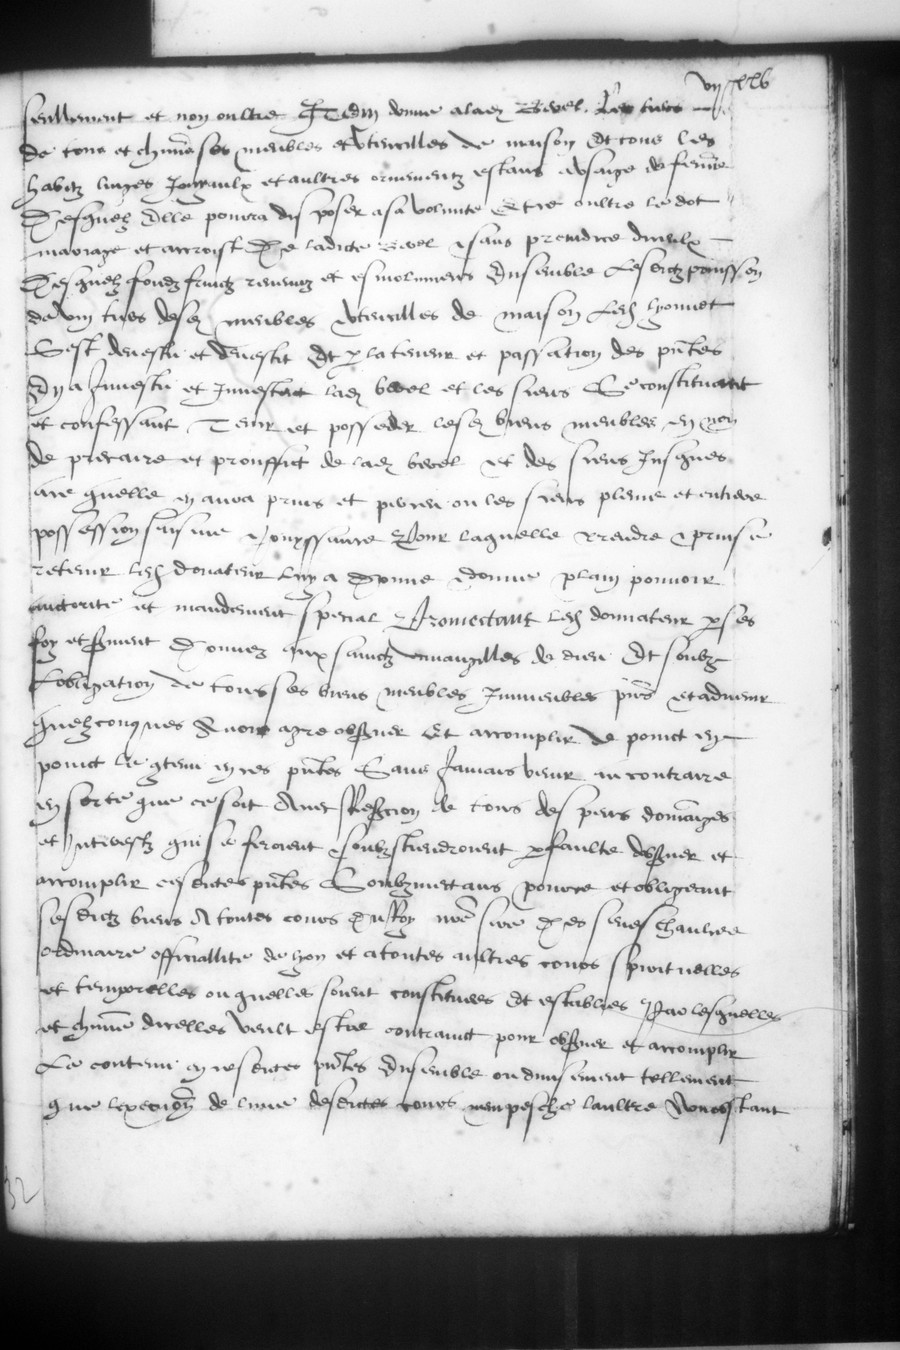 seullement et non oultre Item donne alad Revel Les tiers
de tous et chune ses meubles et Utencilles de maison Et tous les
habitz linges Joyeaulx et aultres ornementz estans Ausaige de femme
Desquelz Elle pourra disposer asa volunte Et ce oultre le dot
mariage et accroist De ladicte Revel sans preiudice diceulx
Desquelz fondz fruictz revenuz et esmolumens Ensemble Lesdictz
de tiers desd meubles Utencilles de maison Led lyonnet
Sest devestu et devestit Et p la teneur et passation des pntes
En a Investu et Investit lad Revel et les siens Se constituant
et confessant Tenir et posseder lesd biens meubles en nom
de precaire et prouffict de lad Revel et des siens Jusques
ace quelle en aura prins et ou les siens pleine et entiere
possession saisine Jouyssance Pour laquelle prendre prinse
retenir led donateur luy a Donne donne plain povoir
auctorite et mandement special Promectant led donnateur p ses
foy et sment Donnez aux sainctz evangilles de dieu Et soubz
Lobligation de tous ses biens meubles Immeubles pns et advenir
quelzconques Avoir agre obsver Et accomplir de poinct en
poinct le gtenu en ces pntes Sans Jamais venir au contraire
en sorte que ce soit Avec Reffection de tous despens domaiges
et Interestz qui se feroient soubztiendroient p faulte dobsver et
accomplir cesdictes pntes Soubzmectans pource et obligeant
sesdictz biens A toutes cours du Roy nre sire Des seneschaulcee
ordinaire officiallite de lyon et atoutes aultres cours spirituelles
et temporelles ou quelles soient constituees Et establies Par lesquelles
et chune dicelles veult estre contrainct pour obsver et accomplir
Le contenu en cesdictes pntes Ensemble ou divisement tellement
que lexecution de lune desdictes cours nempesche laultre Nonobstant
32